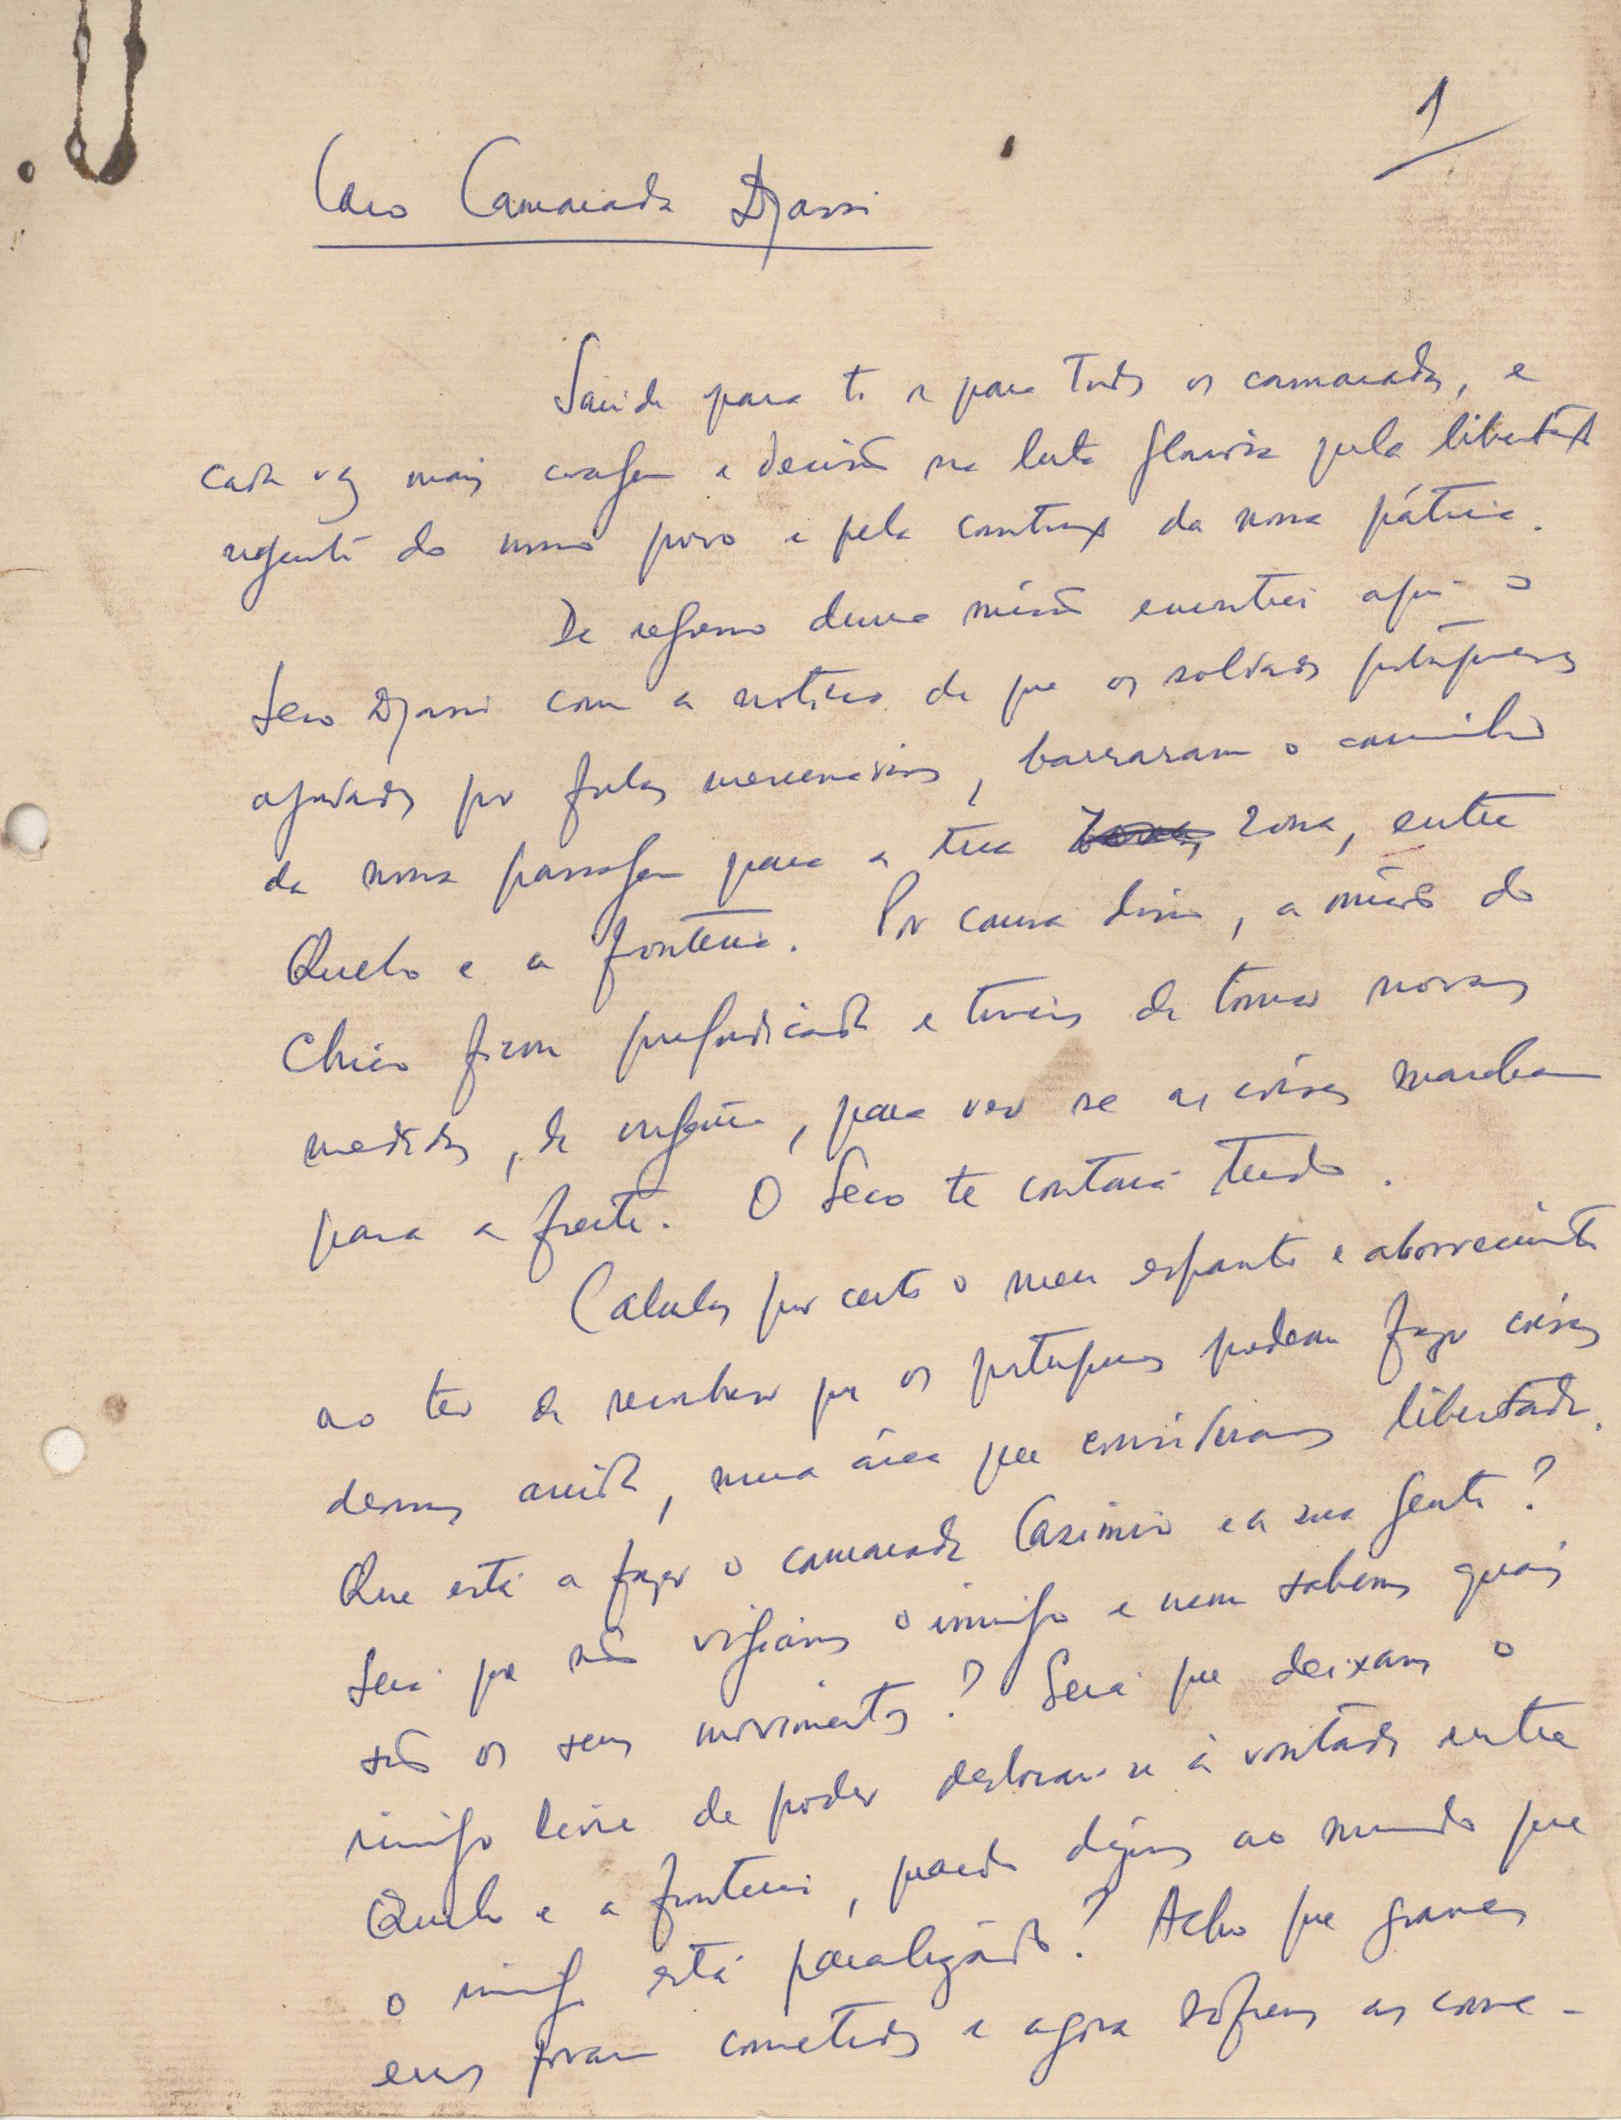 1
Caro Camarada Djassi
Saúde para ti e para todos os camaradas, e
cada vez mais coragem e decisão na luta gloriosa pela libertação
urgente do nosso povo e pela construção da nossa pátria.
De regresso duma missão encontrei aqui o
Seco Djassi com a notícia de que os soldados portugueses
ajudados por fulas mercenários, barraram o caminho
da nossa passagem para a tua zona, entre
Quebo e a fronteira. Por causa disso, a missão do
Chico ficou prejudicada e tivemos de tomar novas
medidas, de urgência, para ver se as coisas marcham
para a frente. O Seco te contará tudo.
Calculas por certo o meu espanto e aborrecimento
ao ter de reconhecer que os portugueses podem fazer coisas
dessas ainda, numa área que consideramos libertada.
Que está a fazer o camarada Casimiro e a sua gente?
Será que não vigiamos o inimigo e nem sabemos quais
são os seus movimentos? Será que deixamos o
inimigo livre de poder deslocar-se à vontade entre
Quebo e a fronteira, quando dizemos ao mundo que
o inimigo está paralizado? Acho que graves
erros foram cometidos e agora sofremos as conse-